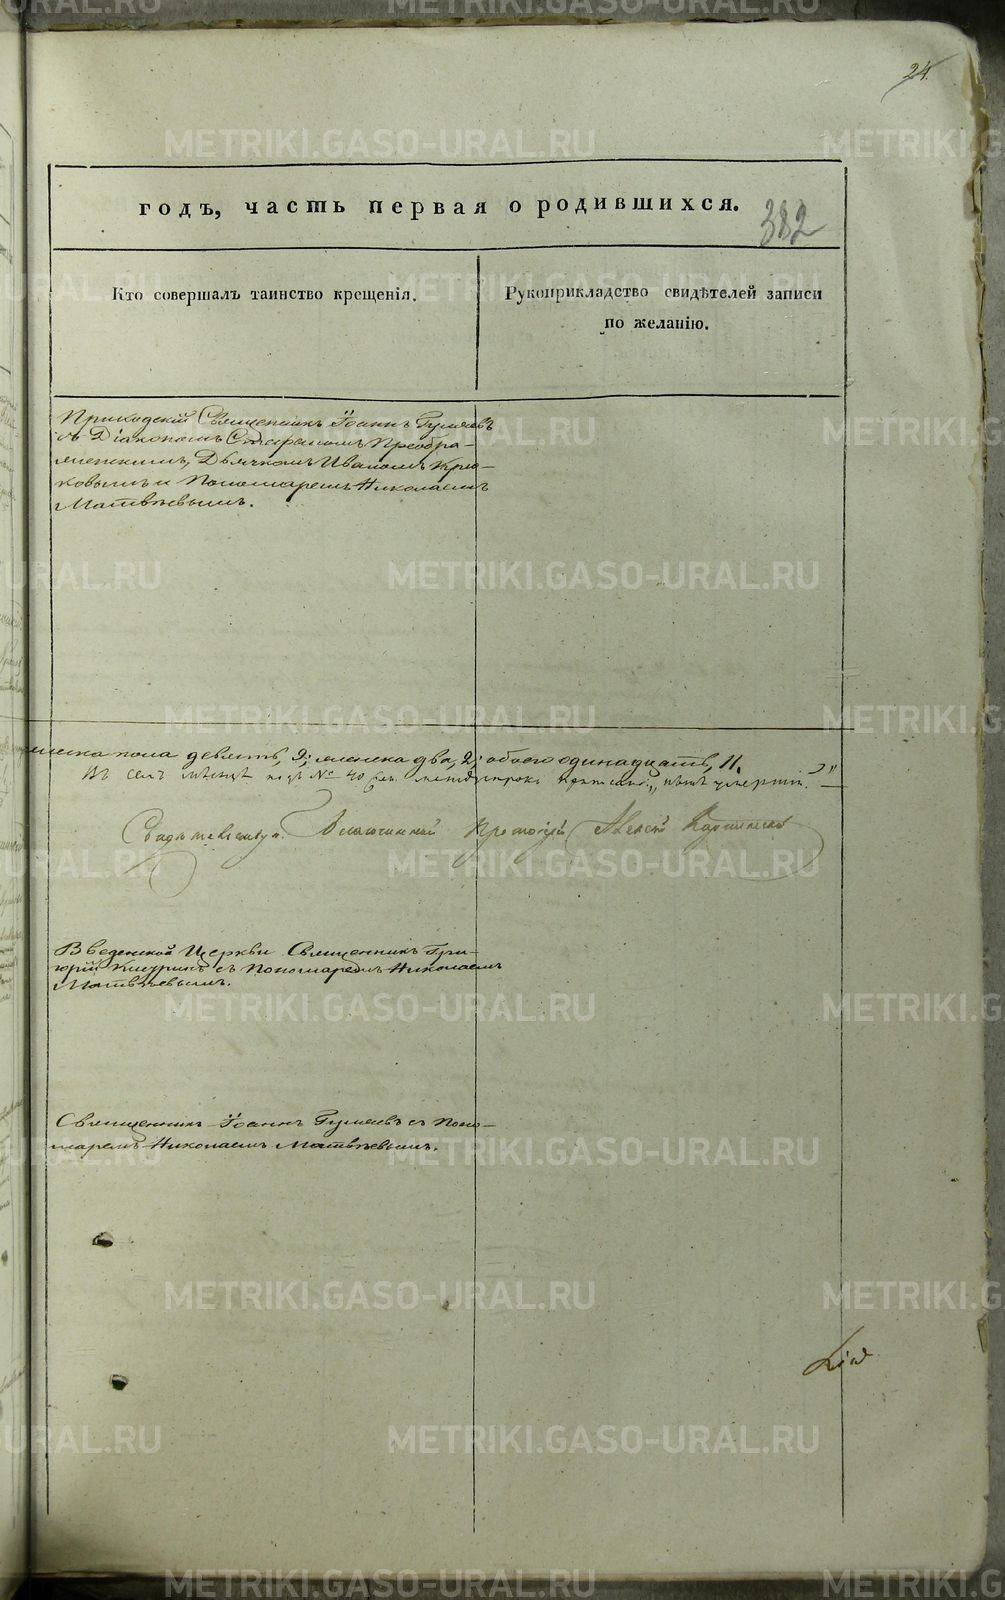 24.
годъ, часть первая о родившихся.
382
Кто совершалъ таинство крещенія.
Рукоприкладство свидѣтелей записи
по желанію.
Приходскій Священникъ Іоаннъ Гуляевъ
съ Діакономъ Стефаномъ Преобра-
женскимъ, Дьячкомъ Иваномъ Крю-
ковымъ и Пономаремъ Николаемъ
Матвѣевымъ.
мужеска пола девять, 9; женска два, 2; обоего одинадцать, 11.
Въ семъ мѣсяцѣ подъ №
Благочинный Протоіерей Алексѣй
Введенской Церкви Священникъ Гри-
горій съ Пономаремъ Николаемъ
Матвѣевымъ.
Священникъ Іоаннъ Гуляевъ съ Поно-
маремъ Николаемъ Матвѣевымъ.
METRIKI.GASO-URAL.RU